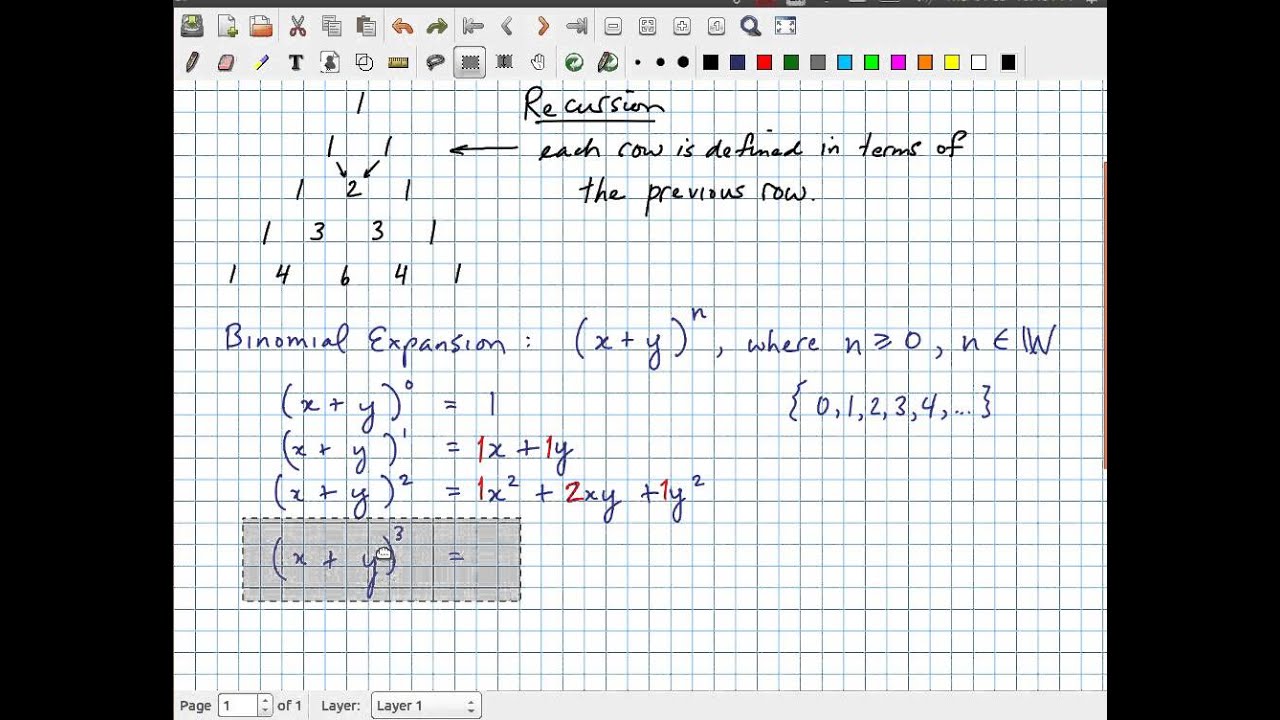 1
Recussion
1 1 ← each row is defined in terms of
1 2 1 the previous row.
1 3 3 1
1 4 6 4 1
Binomial Expansion: (x + y)ⁿ, where n ≥ 0, n ∈ 𝕎
(x + y)⁰ = 1 { 0, 1, 2, 3, 4, ... }
(x + y)¹ = 1x + 1y
(x + y)² = 1x² + 2xy + 1y²
(x + y)³ =
Page 1 of 1 Layer: Layer 1